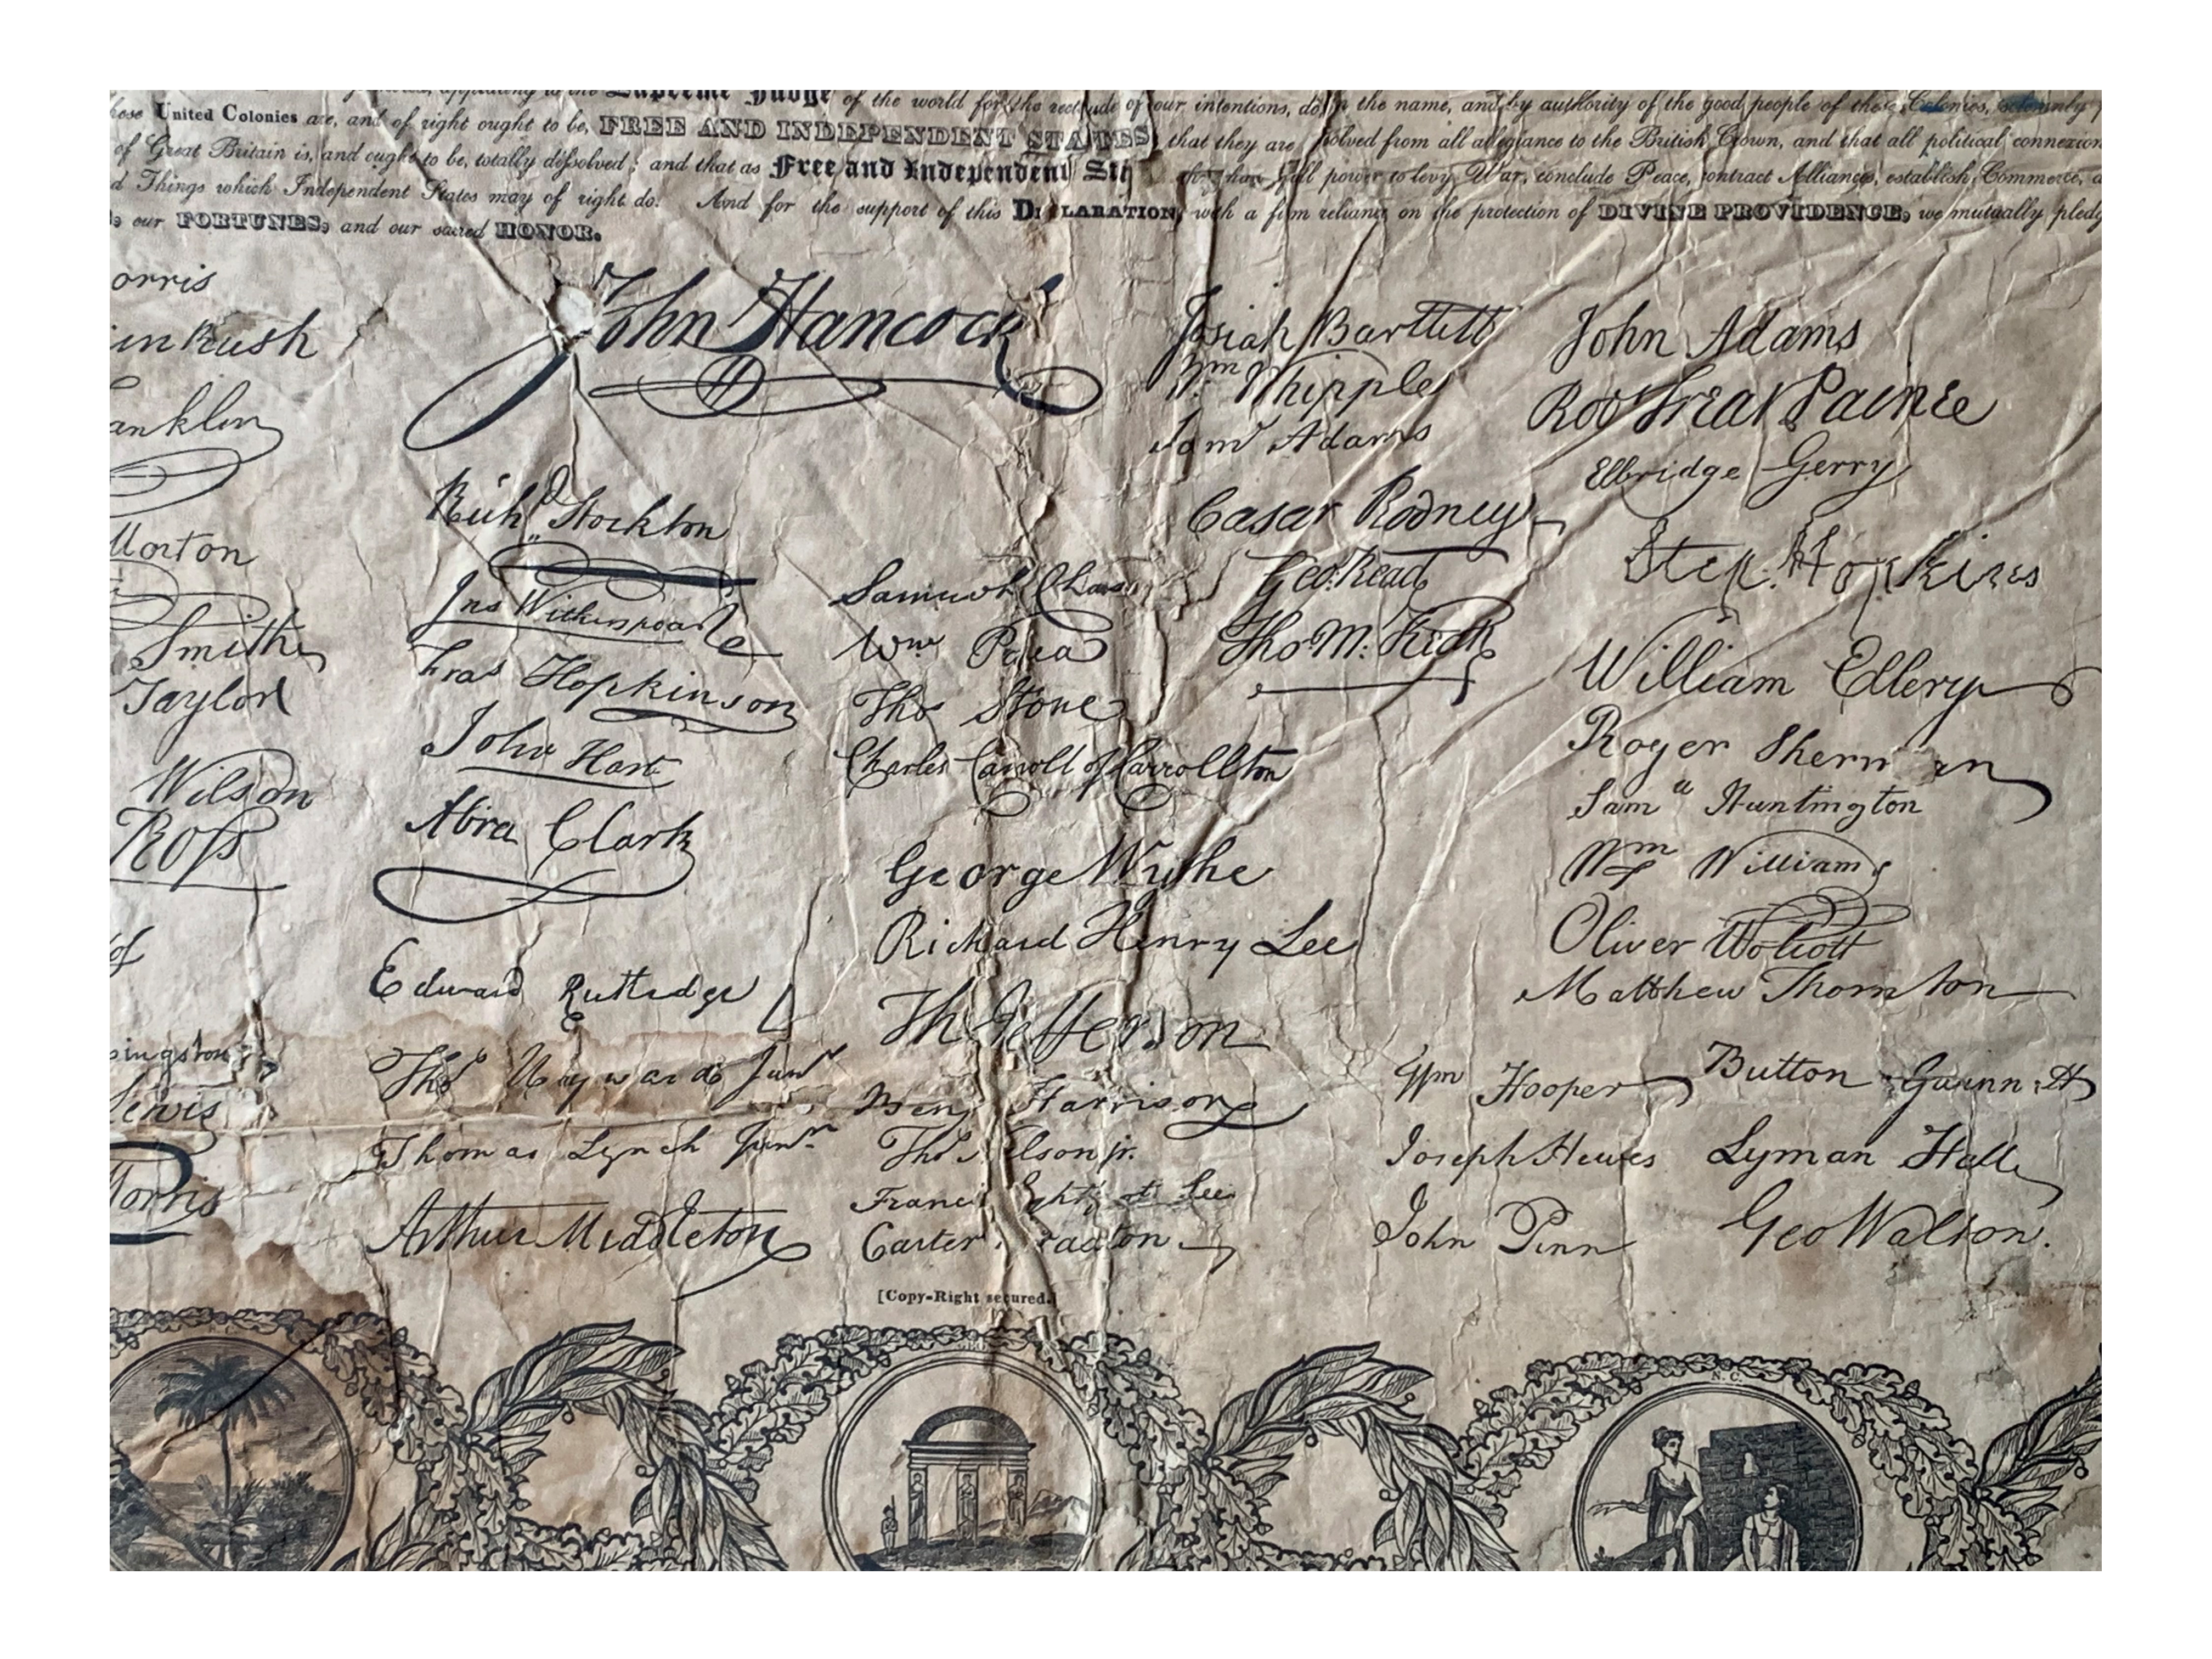 Supreme Judge of the world for the rectitude of our intentions, do, in the name, and by authority of the good people of these Colonies, solemnly
hese United Colonies are, and of right ought to be, FREE AND INDEPENDENT STATES; that they are solved from all allegiance to the British Crown, and that all political connexion
of Great Britain is, and ought to be, totally dissolved; and that as Free and Independent St full power to levy War, conclude Peace, contract Alliances, establish Commerce, a
d Things which Independent States may of right do. And for the support of this DECLARATION, with a firm reliance on the protection of DIVINE PROVIDENCE, we mutually pledg
s, our FORTUNES, and our sacred HONOR.
orris
in Rush
anklin
Morton
Smith
Taylor
Wilson
Ross
of
ingston
Lewis
Morris
John Hancock
Richd Stockton
Jno Witherspoon
Fras Hopkinson
John Hart
Abra Clark
Edward Rutledge
Thos Heyward Junr
Thomas Lynch Junr
Arthur Middleton
Samuel Chase
Wm Paca
Thos Stone
Charles Carroll of Carrollton
George Wythe
Richard Henry Lee
Th Jefferson
Benj Harrison
Thos elson jr.
Franci ghtf ot Lee
Carter raxton
[Copy-Right secured.]
Josiah Bartlett
Wm Whipple
Saml Adams
Cæsar Rodney
Geo. Read
Tho M:Kean
John Adams
Robt Treat Paine
Elbridge Gerry
Step. Hopkins
William Ellery
Roger Sherman
Saml Huntington
Wm Williams
Oliver Wolcott
Matthew Thornton
Wm Hooper
Joseph Hewes
John Penn
Button Gwinnett
Lyman Hall
Geo Walton.
N. C.